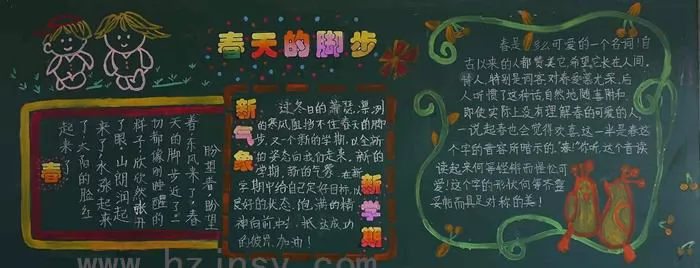 春天的脚步
春
盼望着,盼望
着,东风来了,春
天的脚步近了!一
切都像刚睡醒的
样子,欣欣然张开
了眼,山朗润起
来了,水涨起来
了,太阳的脸红
起来了
新气象
过冬日的萧瑟,凛冽
的寒风阻挡不住春天的脚
步,又一个新的学期,以全新
的姿态向我们走来,新的
学期,新的气象,在新
学期中给自己定好目标,以
良好的状态,饱满的精
神向前冲,抵达成功
的彼岸,加油!
新学期
春是多么可爱的一个名词!自
古以来的人都赞美它,希望它长在人间。
诗人,特别是词客,对春爱慕尤深。后
人听惯了这种话,自然地随喜附和,
即使实际上没有理解春的可爱的人,
一说起春也会觉得欢喜,这一半是春这
个字的音容所暗示的。"春!"你听,这个音读
读起来何等铿锵而惺忪可
爱!这个字的形状何等齐整
妥帖而具足对称的美!
www.hzjnsy.com